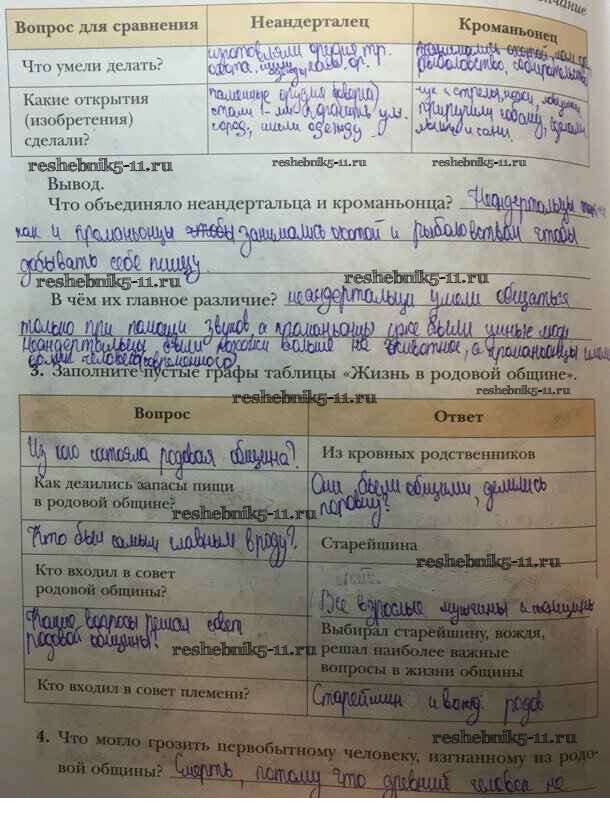 Вопрос для сравнения Неандерталец Кроманьонец
Что умели делать?
изготовляли орудия тр.
охота,
рыболовство, собирательство
Какие открытия
(изобретения)
сделали?
каменные орудия
стали
одежду
приручили собаку, сделали
reshebnik5-11.ru reshebnik5-11.ru
Вывод.
Что объединяло неандертальца и кроманьонца? Неандертальцы
как и кроманьонцы чтобы занимались охотой и рыболовством чтобы
добывать себе пищу
reshebnik5-11.ru
В чём их главное различие? неандертальцы умели общаться
только при помощи звуков, а кроманьонцы уже были умные люди
неандертальцы были похожи больше на животное, а кроманьонцы
человека современного
3. Заполните пустые графы таблицы «Жизнь в родовой общине».
reshebnik5-11.ru
Вопрос Ответ
Из кого состояла родовая община? Из кровных родственников
Как делились запасы пищи
в родовой общине?
Они были общими, делились
поровну?
reshebnik5-11.ru
Кто был самым главным в роду? Старейшина
reshebnik5-11.ru
Кто входил в совет
родовой общины?
Все взрослые мужчины и женщины
Какие вопросы решал совет
родовой общины?
Выбирал старейшину, вождя,
решал наиболее важные
вопросы в жизни общины
reshebnik5-11.ru
Кто входил в совет племени? Старейшин и вожд. родов
reshebnik5-11.ru
4. Что могло грозить первобытному человеку, изгнанному из родо-
вой общины? Смерть, потому что древний человек не